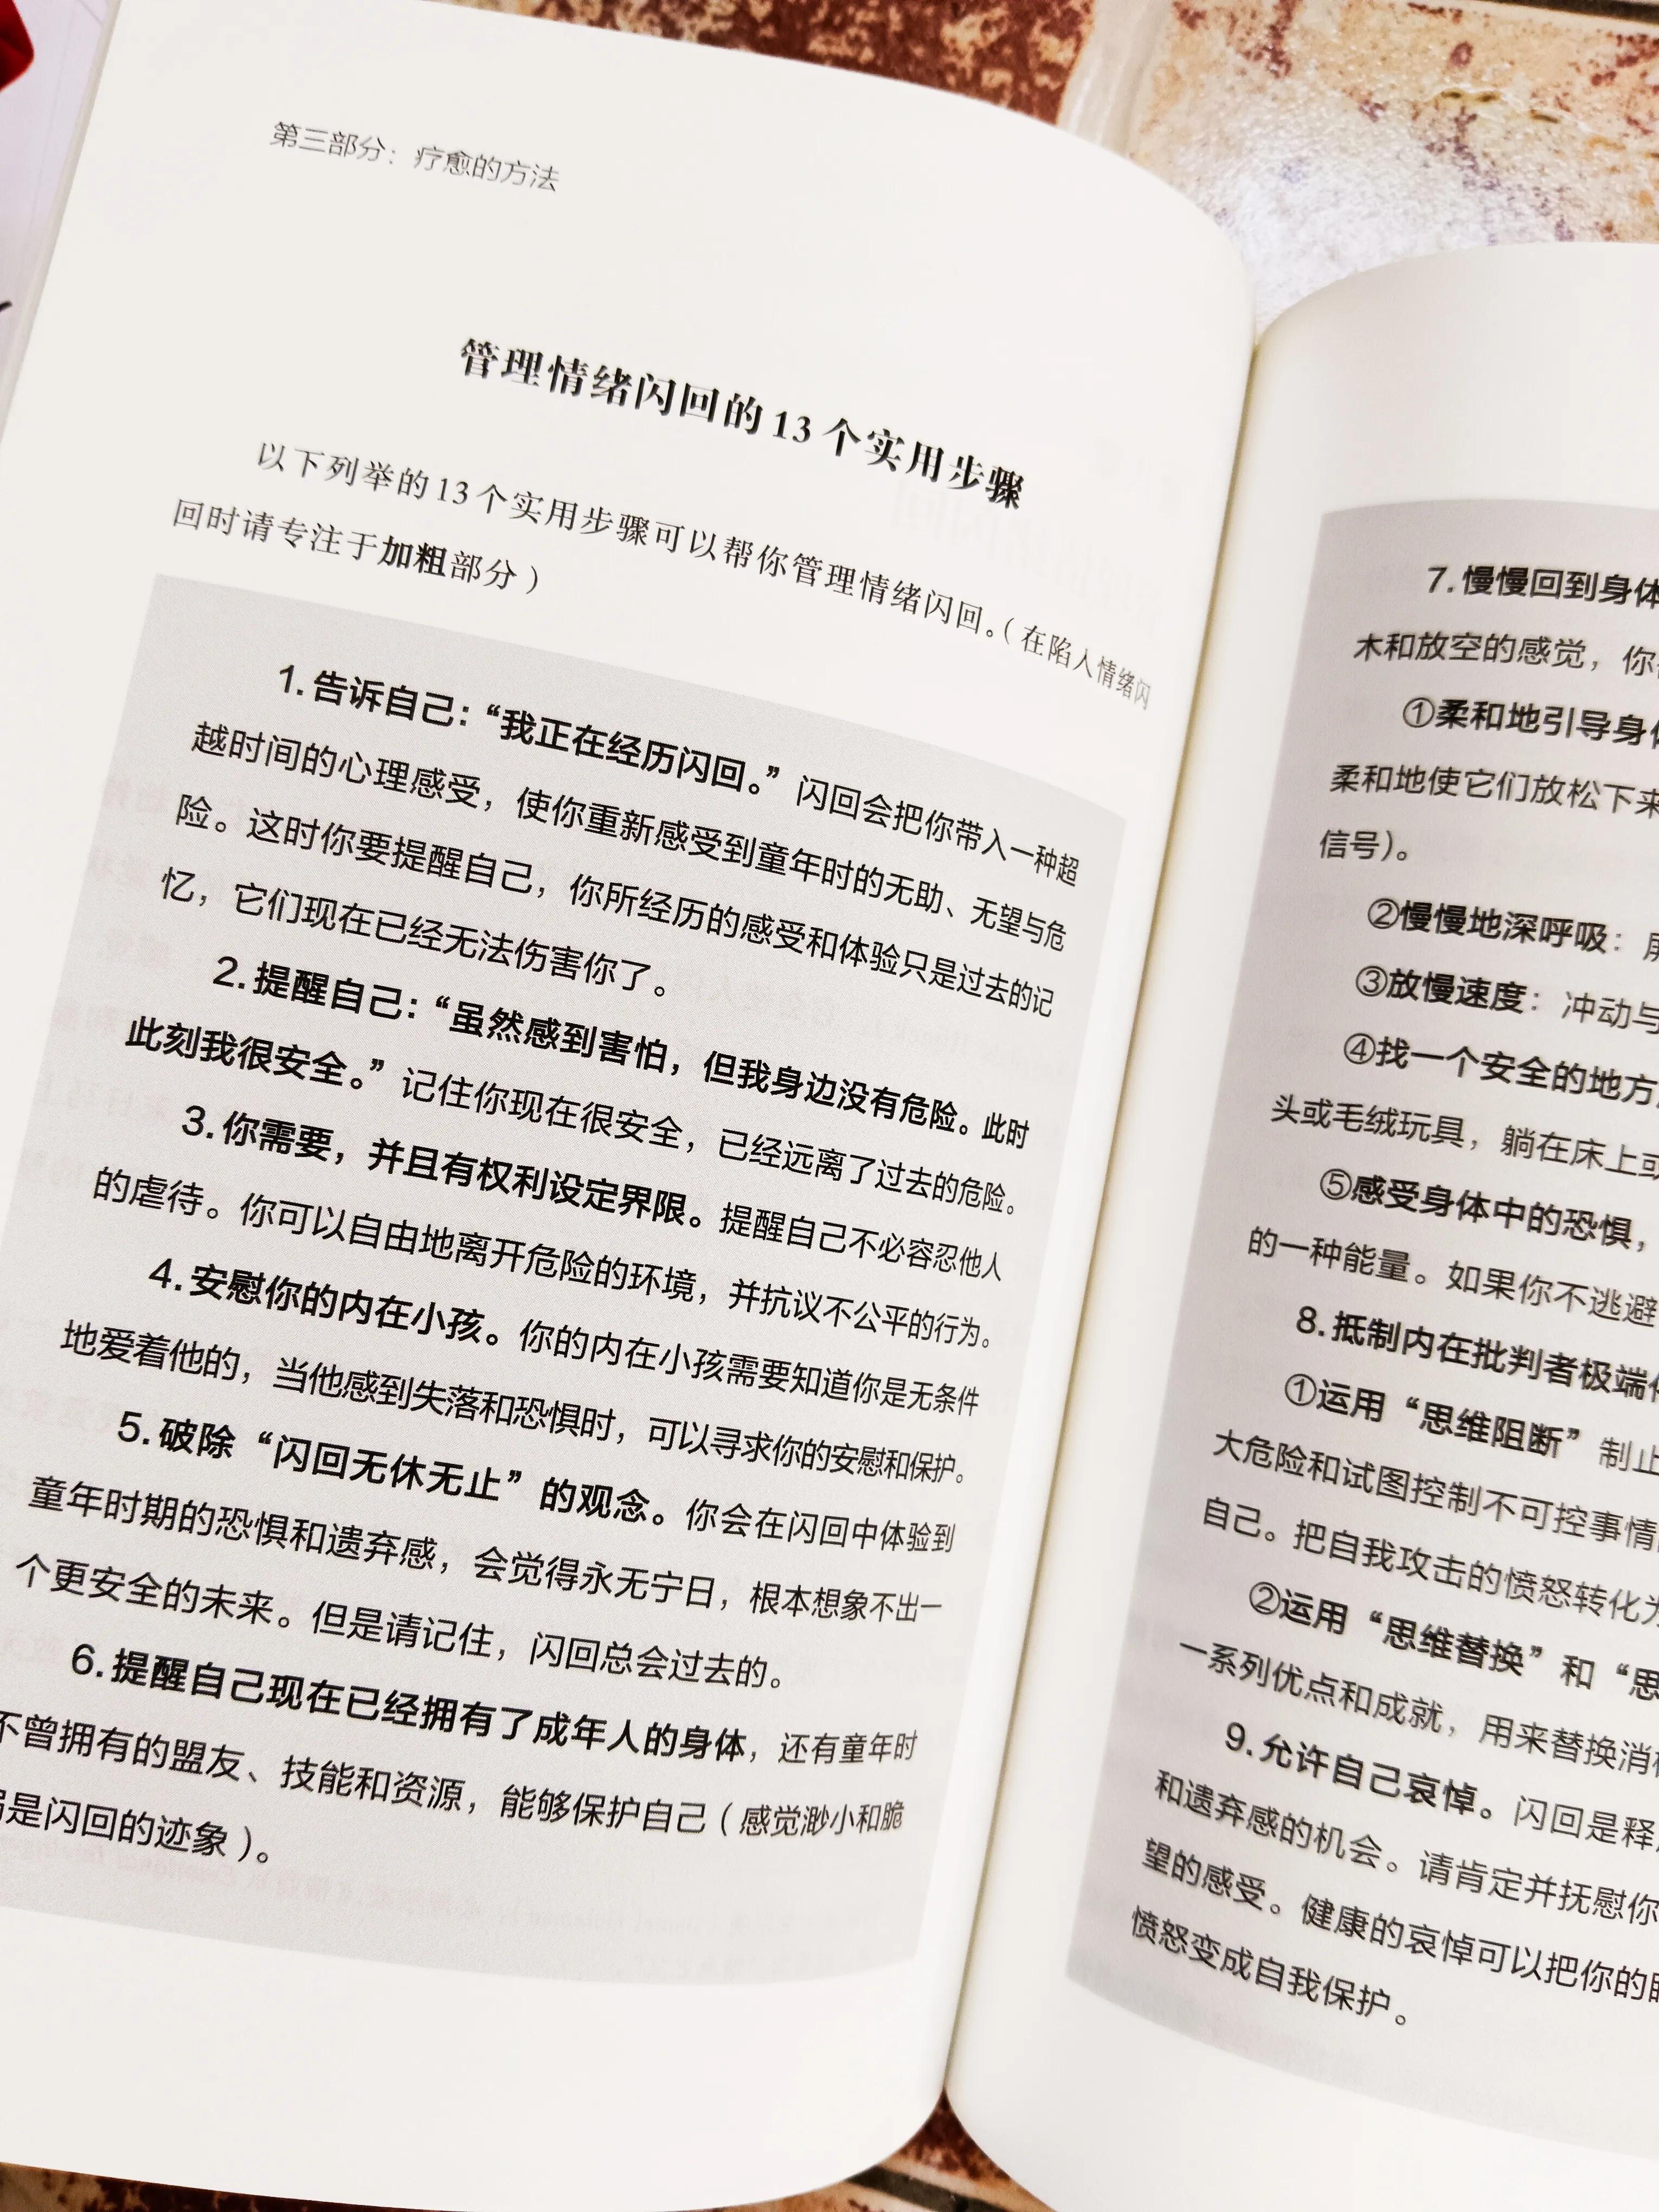 第三部分：疗愈的方法
管理情绪闪回的13个实用步骤
以下列举的13个实用步骤可以帮你管理情绪闪回。（在陷入情绪闪
回时请专注于加粗部分）
1.告诉自己：“我正在经历闪回。”闪回会把你带入一种超
越时间的心理感受，使你重新感受到童年时的无助、无望与危
险。这时你要提醒自己，你所经历的感受和体验只是过去的记
忆，它们现在已经无法伤害你了。
2.提醒自己：“虽然感到害怕，但我身边没有危险。此时
此刻我很安全。”记住你现在很安全，已经远离了过去的危险。
3.你需要，并且有权利设定界限。提醒自己不必容忍他人
的虐待。你可以自由地离开危险的环境，并抗议不公平的行为。
4.安慰你的内在小孩。你的内在小孩需要知道你是无条件
地爱着他的，当他感到失落和恐惧时，可以寻求你的安慰和保护。
5.破除“闪回无休无止”的观念。你会在闪回中体验到
童年时期的恐惧和遗弃感，会觉得永无宁日，根本想象不出一
个更安全的未来。但是请记住，闪回总会过去的。
6.提醒自己现在已经拥有了成年人的身体，还有童年时
不曾拥有的盟友、技能和资源，能够保护自己（感觉渺小和脆
是闪回的迹象）。
7.慢慢回到身体
木和放空的感觉，你
①柔和地引导身体
柔和地使它们放松下来
信号）。
②慢慢地深呼吸：
③放慢速度：冲动与
④找一个安全的地方
头或毛绒玩具，躺在床上或
⑤感受身体中的恐惧，
的一种能量。如果你不逃避
8.抵制内在批判者极端
①运用“思维阻断”制止
大危险和试图控制不可控事情
自己。把自我攻击的愤怒转化为
②运用“思维替换”和“思
一系列优点和成就，用来替换消
9.允许自己哀悼。闪回是释
和遗弃感的机会。请肯定并抚慰你
望的感受。健康的哀悼可以把你的
愤怒变成自我保护。